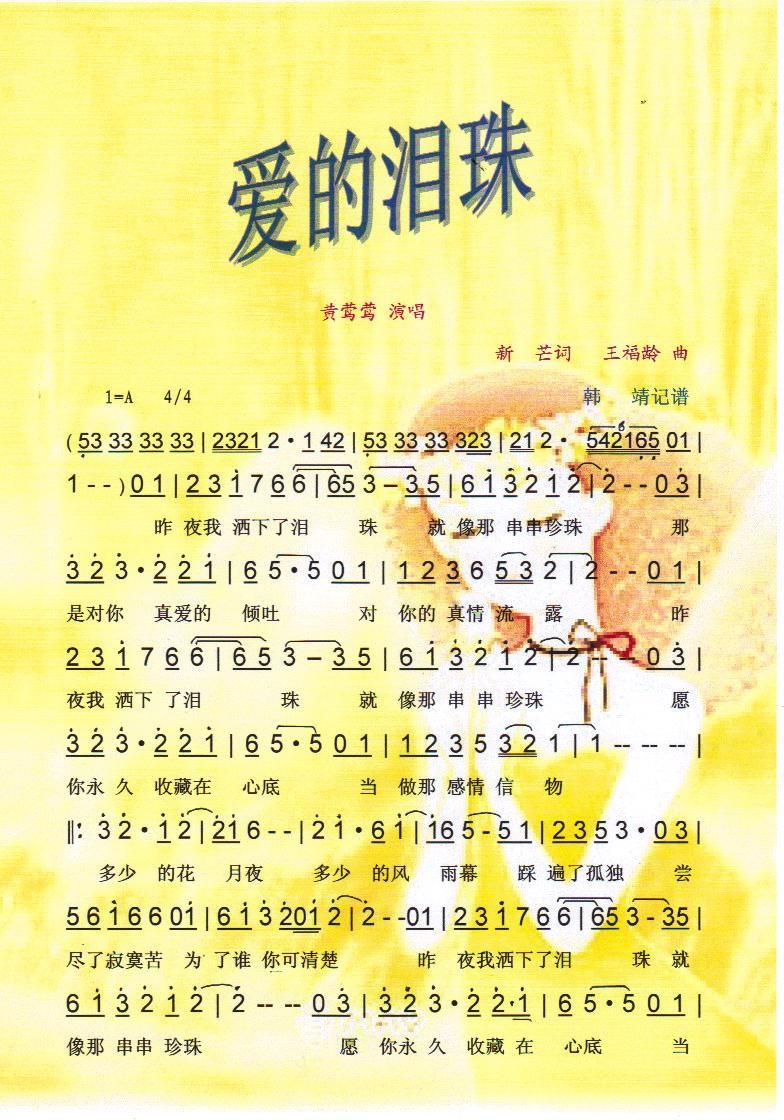 爱的泪珠
黄莺莺 演唱
新 芒词 王福龄 曲
1=A 4/4 韩 靖记谱
( 53 33 33 33 | 2321 2 · 1 42 | 53 33 33 323 | 21 2 · 542165 01 |
1 - - ) 0 1 | 2 3 1 7 6 6 | 65 3 – 3 5 | 6 1 3 2 1 2 | 2 - - 0 3 |
昨 夜我 洒下了泪 珠 就 像那 串串珍珠 那
3 2 3 · 2 2 1 | 6 5 · 5 0 1 | 1 2 3 6 5 3 2 | 2 - - 0 1 |
是对你 真爱的 倾吐 对 你的 真情 流 露 昨
2 3 1 7 6 6 | 6 5 3 – 3 5 | 6 1 3 2 1 2 | 2 -- -- 0 3 |
夜我 洒下 了泪 珠 就 像那 串 串 珍珠 愿
3 2 3 · 2 2 1 | 6 5 · 5 0 1 | 1 2 3 5 3 2 1 | 1 -- -- -- |
你永 久 收藏在 心底 当 做那 感情 信 物
‖: 3 2 · 1 2 | 21 6 - - | 2 1 · 6 1 | 16 5 - 5 1 | 2 3 5 3 · 0 3 |
多少 的花 月夜 多少 的风 雨幕 踩 遍了孤独 尝
5 6 1 6 6 01 | 6 1 3 201 2 | 2 - - 01 | 2 3 1 7 6 6 | 65 3 - 35 |
尽了寂寞苦 为 了谁 你可清楚 昨 夜我洒下了泪 珠 就
6 1 3 2 1 2 | 2 -- -- 0 3 | 3 2 3 · 2 2 · 1 | 6 5 · 5 0 1 |
像那 串串 珍珠 愿 你永 久 收藏 在 心底 当